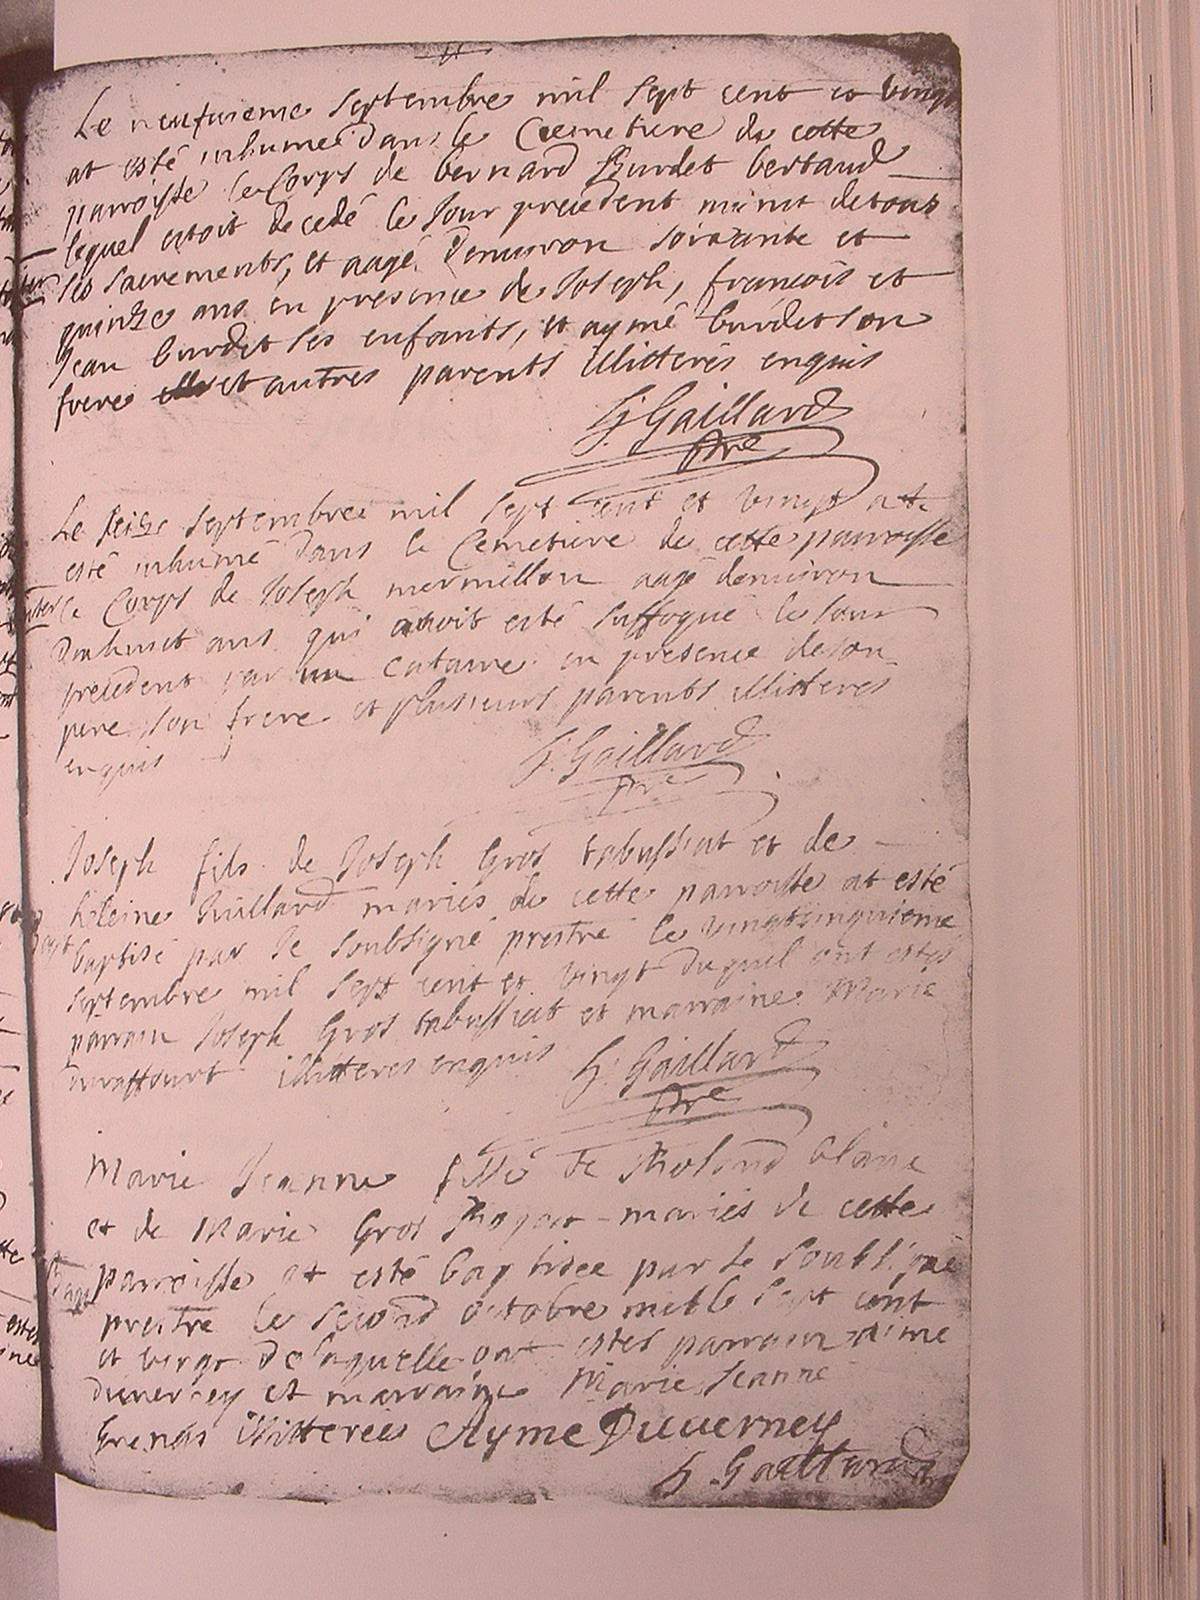 Le neufvieme septembre mil sept cent et vingt
at esté inhumé dans le Cemetiere de cette
parroisse le Corps de bernard Burdet bertaud
lequel estoit decedé le Jour precedent muni de tous
ses sacrements, et aagé denviron soixante et
quinze ans en presence de Joseph, francois et
Jean burdet ses enfants, et aymé burdet son
frere et autres parents illitterés enquis
Gaillard
pbre
Le seize septembre mil sept cent et vingt at
esté inhumé dans le Cemetiere de cette parroisse
le Corps de Joseph mermillon aagé denviron
dixhuit ans qui avoit esté suffoqué le Jour
precedent par un catarre en presence de son
pere son frere et plusieurs parents illitteres
enquis
Gaillard
pbre
Joseph fils de Joseph Gros tabussiat et de
heleine maries de cette parroisse at esté
baptisé par Je soubsigné prestre le vingtcinquieme
septembre mil sept cent et vingt duquel ont estes
parrain Joseph Gros tabussiat et marraine Marie
illitteres enquis
Gaillard
pbre
Marie Jeanne fille de Roland blanc
et de Marie Gros mariés de cette
parroisse at esté baptisee par Je soubsigne
prestre le second octobre mille sept cent
et vingt de laquelle ont estes parrain aime
duverney et marraine Marie Jeanne
illitterées Ayme Duuerney
Gaillard